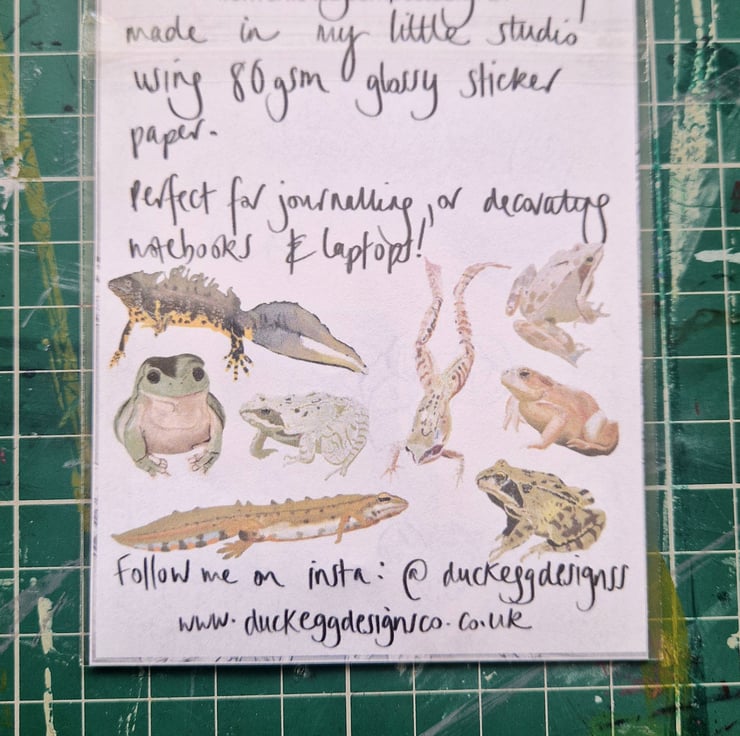 made in my little studio
using 80gsm glossy sticker
paper.
Perfect for journalling, or decorating
notebooks & laptops!
Follow me on insta: @duckeggdesignss
www.duckeggdesignsco.co.uk